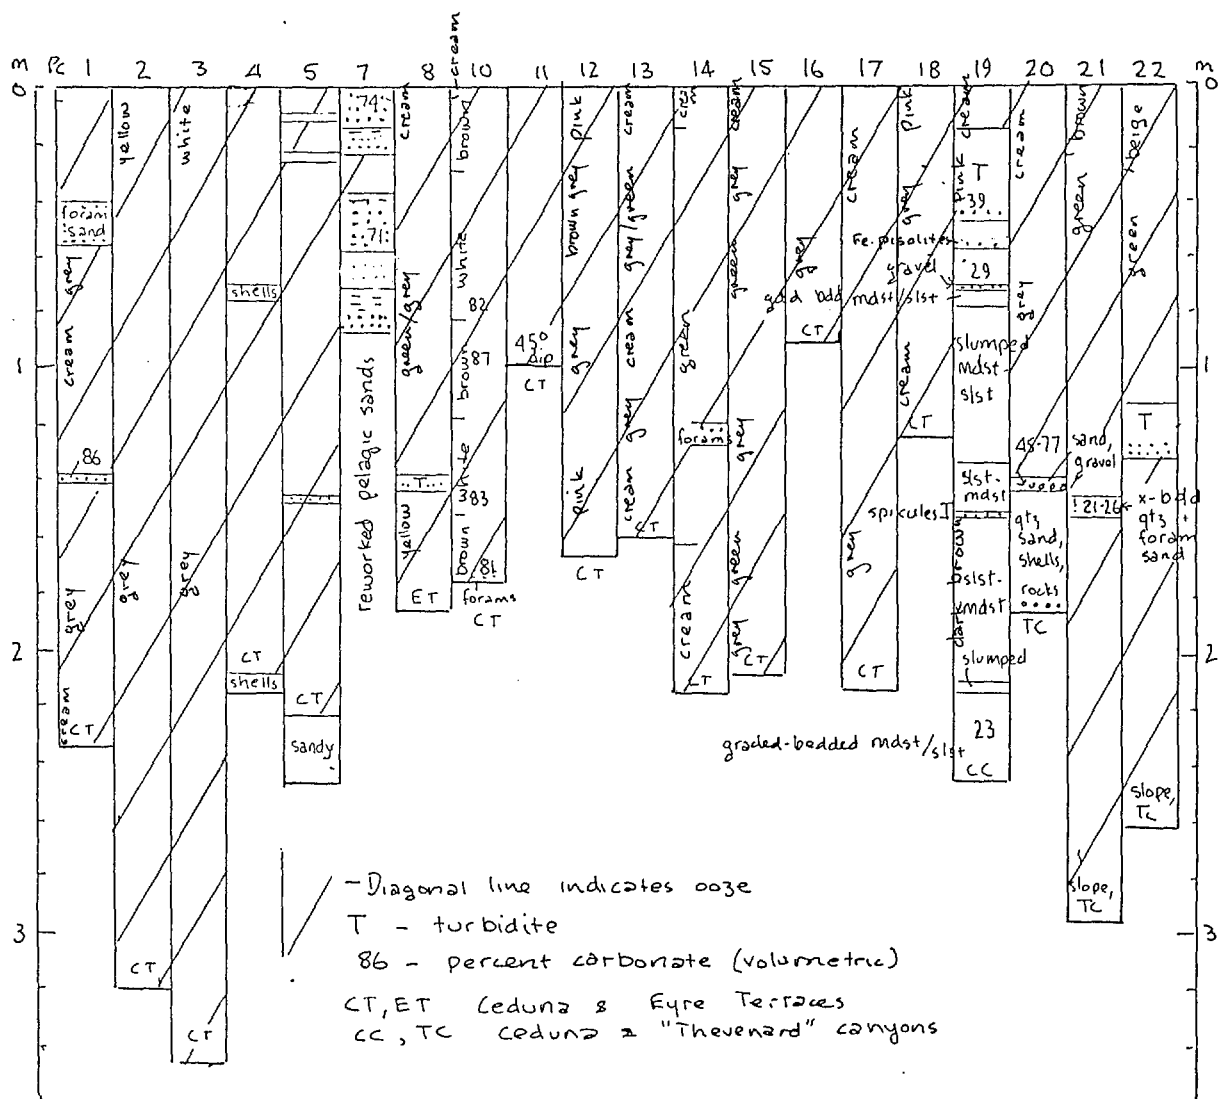 m PC 1 2 3 4 5 7 8 10 11 12 13 14 15 16 17 18 19 20 21 22 m
0
1
2
3
0
1
2
3
foram
sand
cream grey
86
grey
cream
CT
yellow
grey
CT
white
grey
CT
shells
CT
shells
CT
sandy
74
71
reworked pelagic sands
cream
green/grey
T
yellow
ET
cream
brown
white
82
brown
87
white
83
brown
81
forams
CT
45°
dip
CT
pink
brown grey
grey
pink
CT
cream
grey/green
cream
grey
cream
CT
cream
green
forams
cream
CT
cream
grey
green
grey
green
grey
CT
grey
CT
cream
grey
CT
pink
grey
cream
CT
cream
pink
T
39
Fe. pisolites
gravel
29
gdd bdd mdst/slst
slumped
mdst
slst
slst-
mdst
spicules
dark brown
slst-
mdst
slumped
23
graded-bedded mdst/slst
CC
cream
grey
48-77
qtz
sand,
shells,
rocks
TC
brown
green
sand,
gravel
21-26
slope,
TC
beige
green
T
x-bdd
qtz +
foram
sand
slope,
TC
- Diagonal line indicates ooze
T - turbidite
86 - percent carbonate (volumetric)
CT, ET Ceduna & Eyre Terraces
CC, TC Ceduna & "Thevenard" canyons